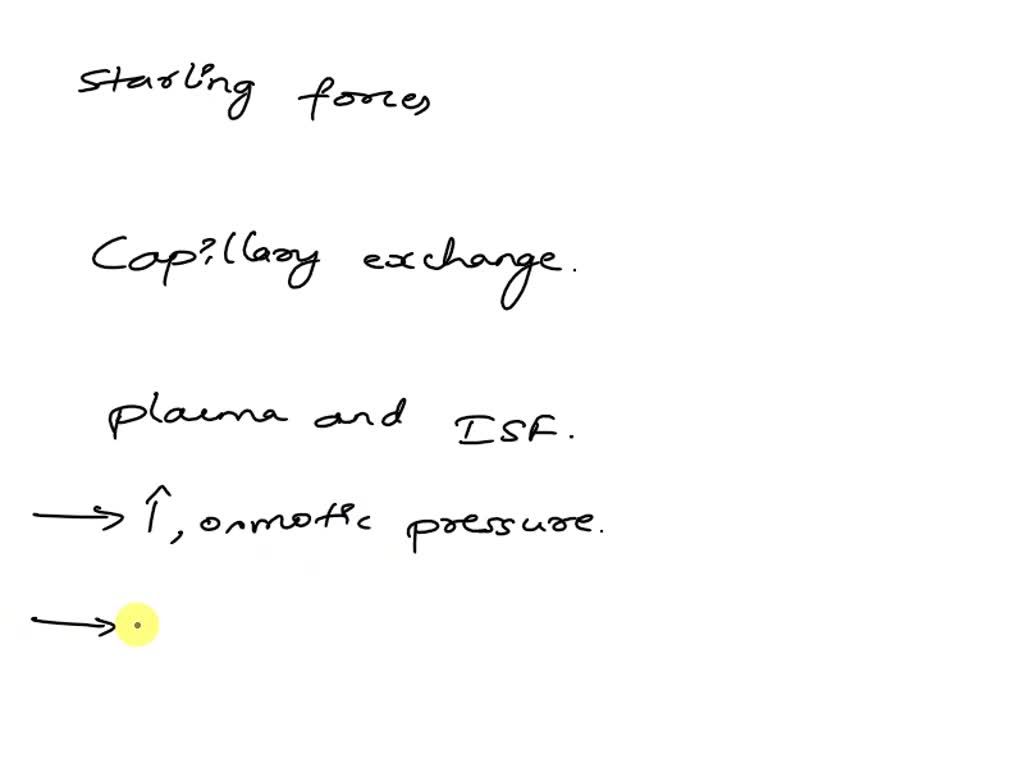 Starling forces
Capillary exchange.
plasma and ISF.
→ ↑, osmotic pressure.
→